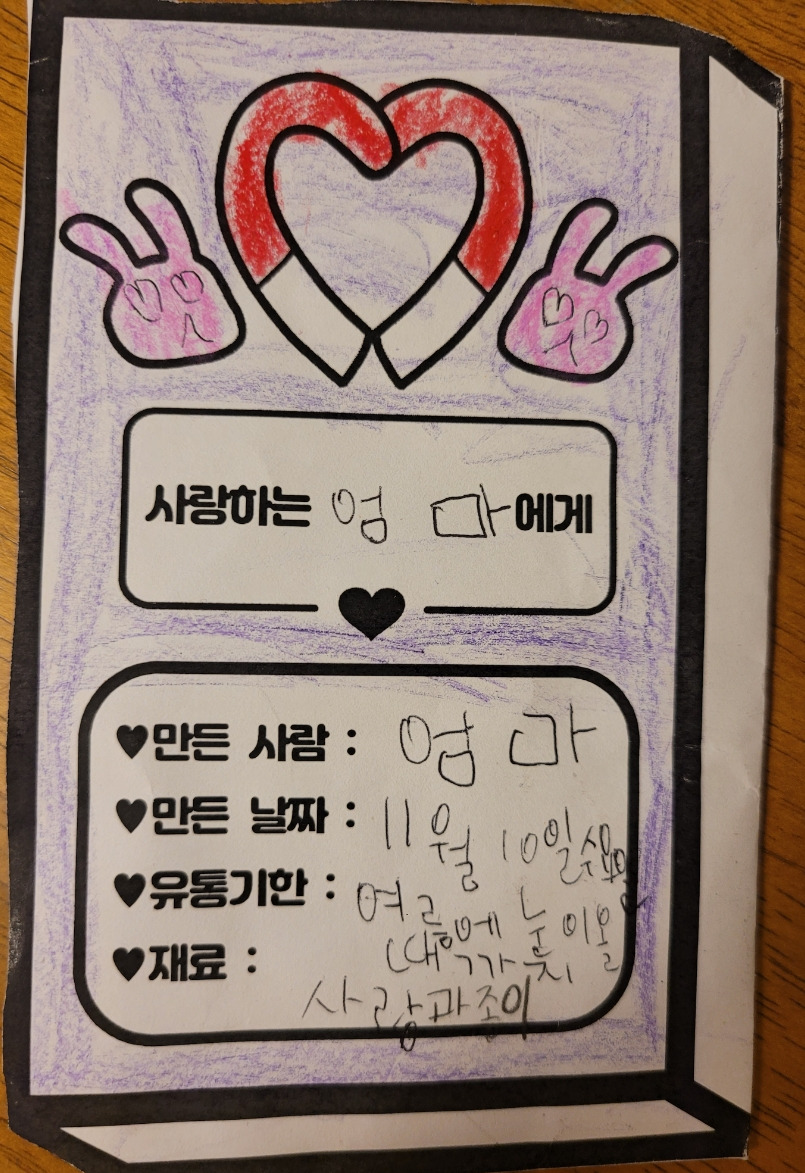 사랑하는 엄마에게
♥만든 사람 : 엄마
♥만든 날짜 : 11월 10일 수요일
♥유통기한 : 여름에 눈이 올
때까지
♥재료 :
사랑과 종이